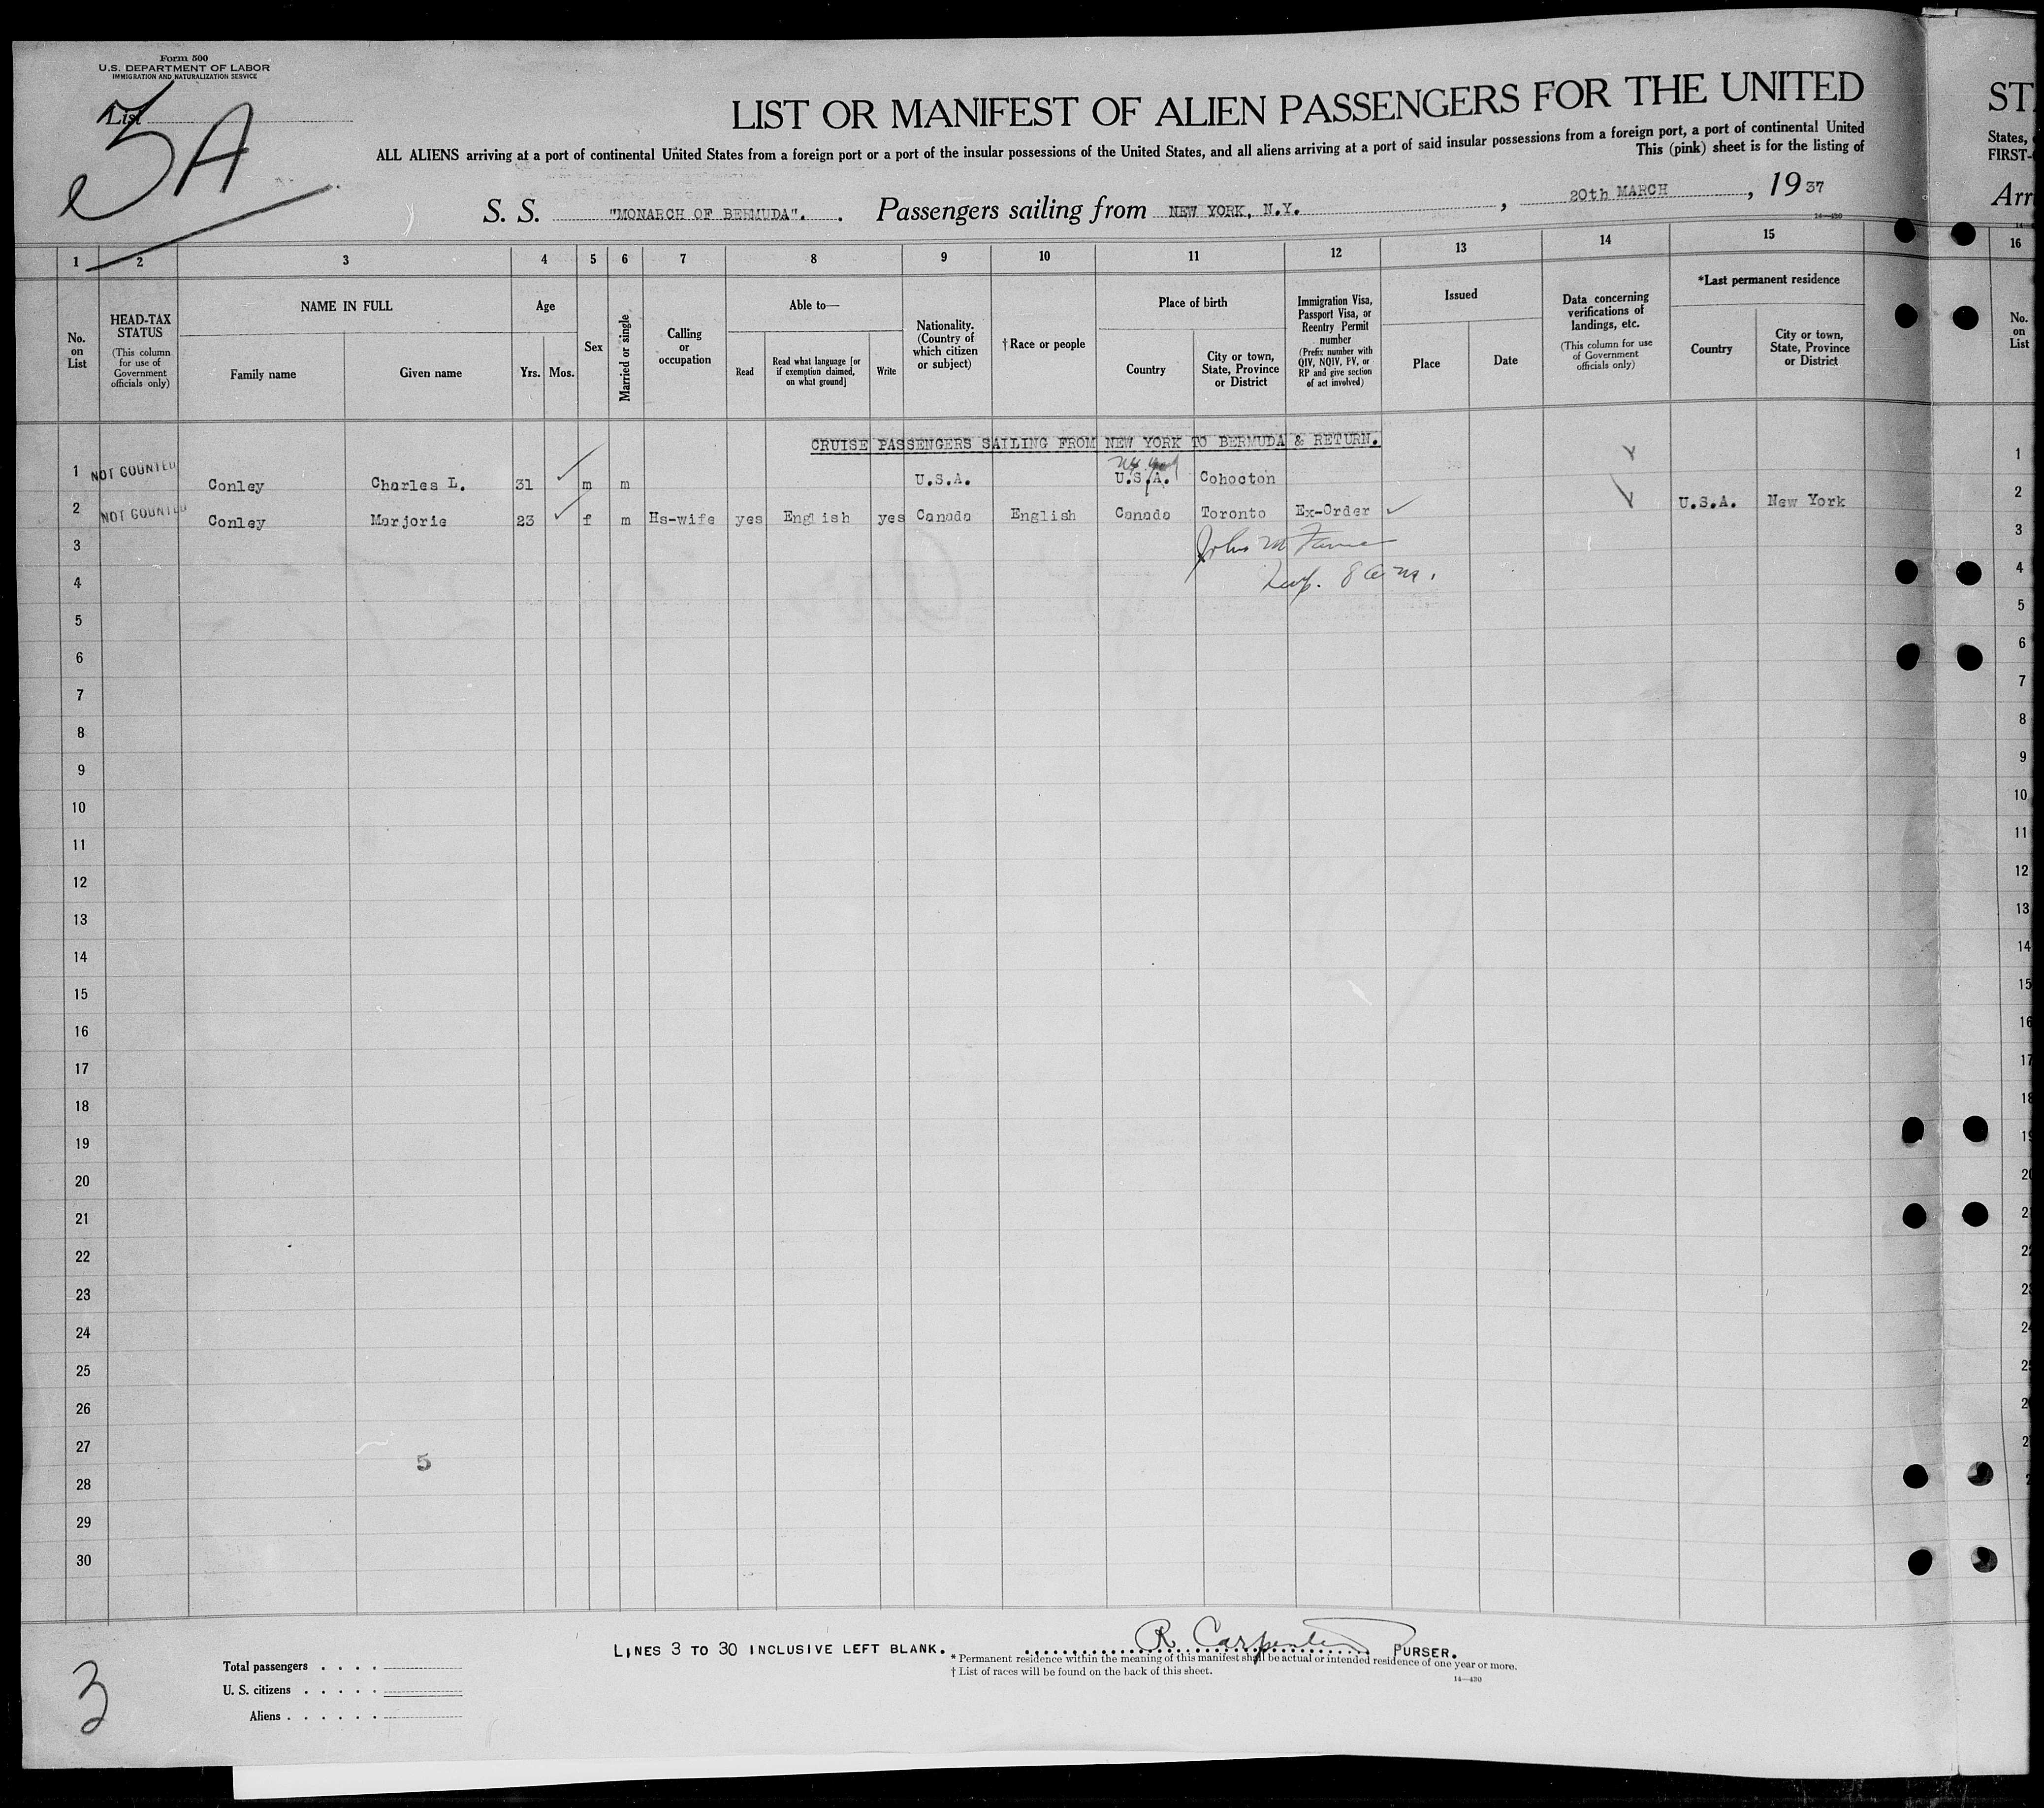 Form 500
U.S. DEPARTMENT OF LABOR
IMMIGRATION AND NATURALIZATION SERVICE
List
5A
LIST OR MANIFEST OF ALIEN PASSENGERS FOR THE UNITED
ST
ALL ALIENS arriving at a port of continental United States from a foreign port or a port of the insular possessions of the United States, and all aliens arriving at a port of said insular possessions from a foreign port, a port of continental United
States,
This (pink) sheet is for the listing of
FIRST-
S. S. "MONARCH OF BERMUDA". Passengers sailing from NEW YORK, N.Y., 20th MARCH, 1937
Arr
14—430
1 2 3 4 5 6 7 8 9 10 11 12 13 14 15 16
No. on List
HEAD-TAX STATUS (This column for use of Government officials only)
NAME IN FULL
Family name
Given name
Age
Yrs. Mos.
Sex
Married or single
Calling or occupation
Able to—
Read
Read what language [or if exemption claimed, on what ground]
Write
Nationality. (Country of which citizen or subject)
† Race or people
Place of birth
Country
City or town, State, Province or District
Immigration Visa, Passport Visa, or Reentry Permit number (Prefix number with QIV, NQIV, PV, or RP and give section of act involved)
Issued
Place
Date
Data concerning verifications of landings, etc. (This column for use of Government officials only)
*Last permanent residence
Country
City or town, State, Province or District
No. on List
CRUISE PASSENGERS SAILING FROM NEW YORK TO BERMUDA & RETURN.
1 NOT COUNTED Conley Charles L. 31 m m U.S.A. U.S.A. Cohocton 1
2 NOT COUNTED Conley Marjorie 23 f m Hs-wife yes English yes Canada English Canada Toronto Ex-Order U.S.A. New York 2
3 John M 3
4 4
5 5
6 6
7 7
8 8
9 9
10 10
11 11
12 12
13 13
14 14
15 15
16 16
17 17
18 18
19 19
20 20
21 2
22 22
23 23
24 24
25 25
26 2
27 2
5
28 2
29
30
LINES 3 TO 30 INCLUSIVE LEFT BLANK. R Carpenter PURSER.
* Permanent residence within the meaning of this manifest shall be actual or intended residence of one year or more.
† List of races will be found on the back of this sheet.
14—430
Total passengers
U. S. citizens
Aliens
3